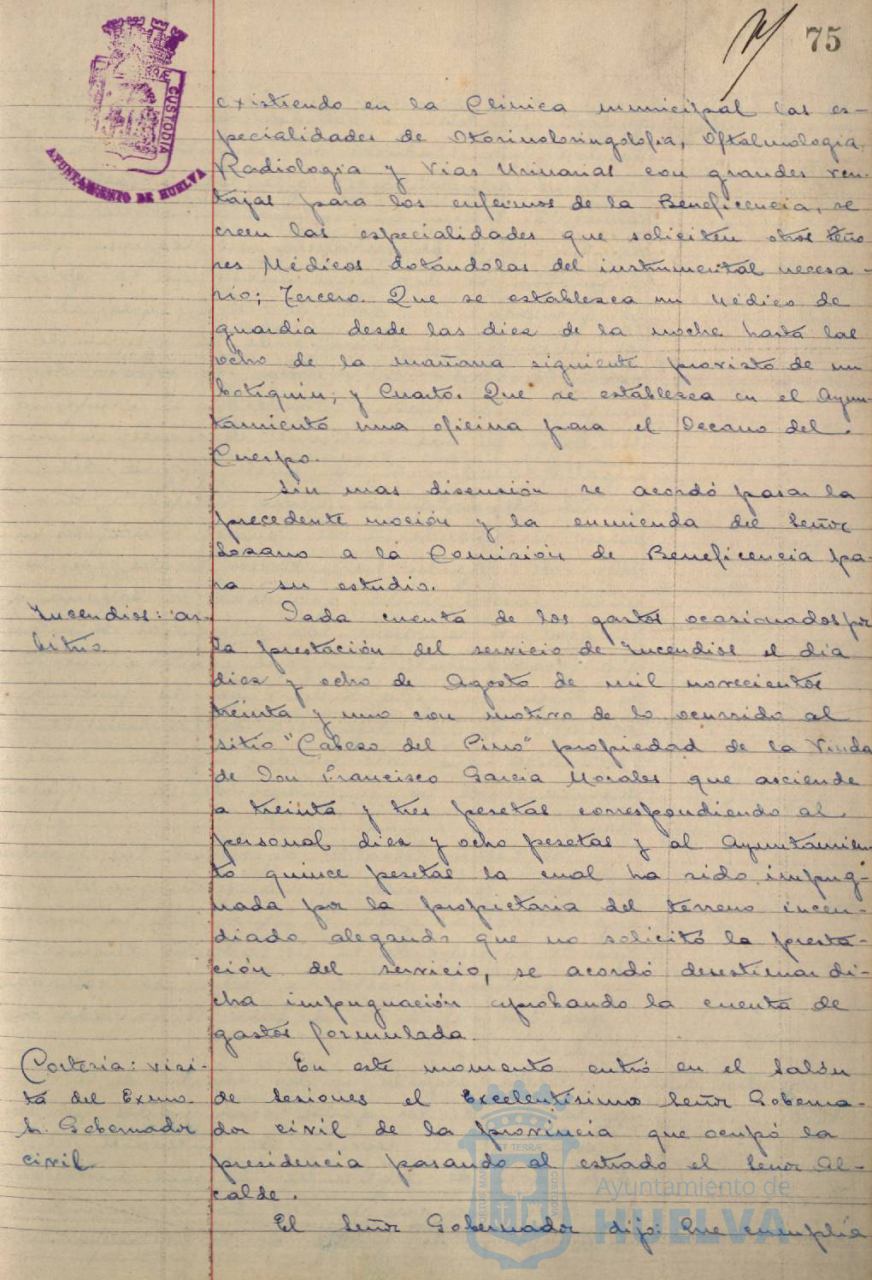 75
CUSTODIA
AYUNTAMIENTO DE HUELVA
existiendo en la Clínica municipal las es-
pecialidades de Otorinoloringolofia, Oftalmologia,
Radiologia y Vias Urinarias con grandes ven-
tajas para los enfermos de la Beneficencia, se
creen las especialidades que soliciten otros Seño
res Médicos dotándolas del instrumental necesa-
rio; Tercero. Que se establezca un Médico de
guardia desde las diez de la noche hasta las
ocho de la mañana siguiente provisto de un
botiquin; y Cuarto. Que se establezca en el Ayun-
tamiento una oficina para el Decano del
Cuerpo.
Sin mas discusión se acordó pasar la
precedente moción y la enmienda del Señor
Lozano a la Comisión de Beneficencia pa-
ra su estudio.
Incendios: ar-
bitrio.
Dada cuenta de los gastos ocasionados por
la prestación del servicio de Incendios el dia
diez y ocho de Agosto de mil novecientos
treinta y uno con motivo de lo ocurrido al
sitio "Cabezo del Pino" propiedad de la Viuda
de Don Francisco Garcia Morales que asciende
a treinta y tres pesetas correspondiendo al
personal diez y ocho pesetas y al Ayuntamien
to quince pesetas la cual ha sido impug-
nada por la propietaria del terreno incen-
diado alegando que no solicitó la presta-
ción del servicio, se acordó desestimar di-
cha impugnación aprobando la cuenta de
gastos formulada.
Cortesia: visi-
ta del Excmo.
Sr. Gobernador
civil
En este momento entró en el Salón
de Sesiones el Excelentísimo Señor Goberna-
dor civil de la provincia que ocupó la
presidencia pasando al estrado el Señor Al-
calde.
El Señor Gobernador dijo: Que cumplía
Ayuntamiento de
HUELVA